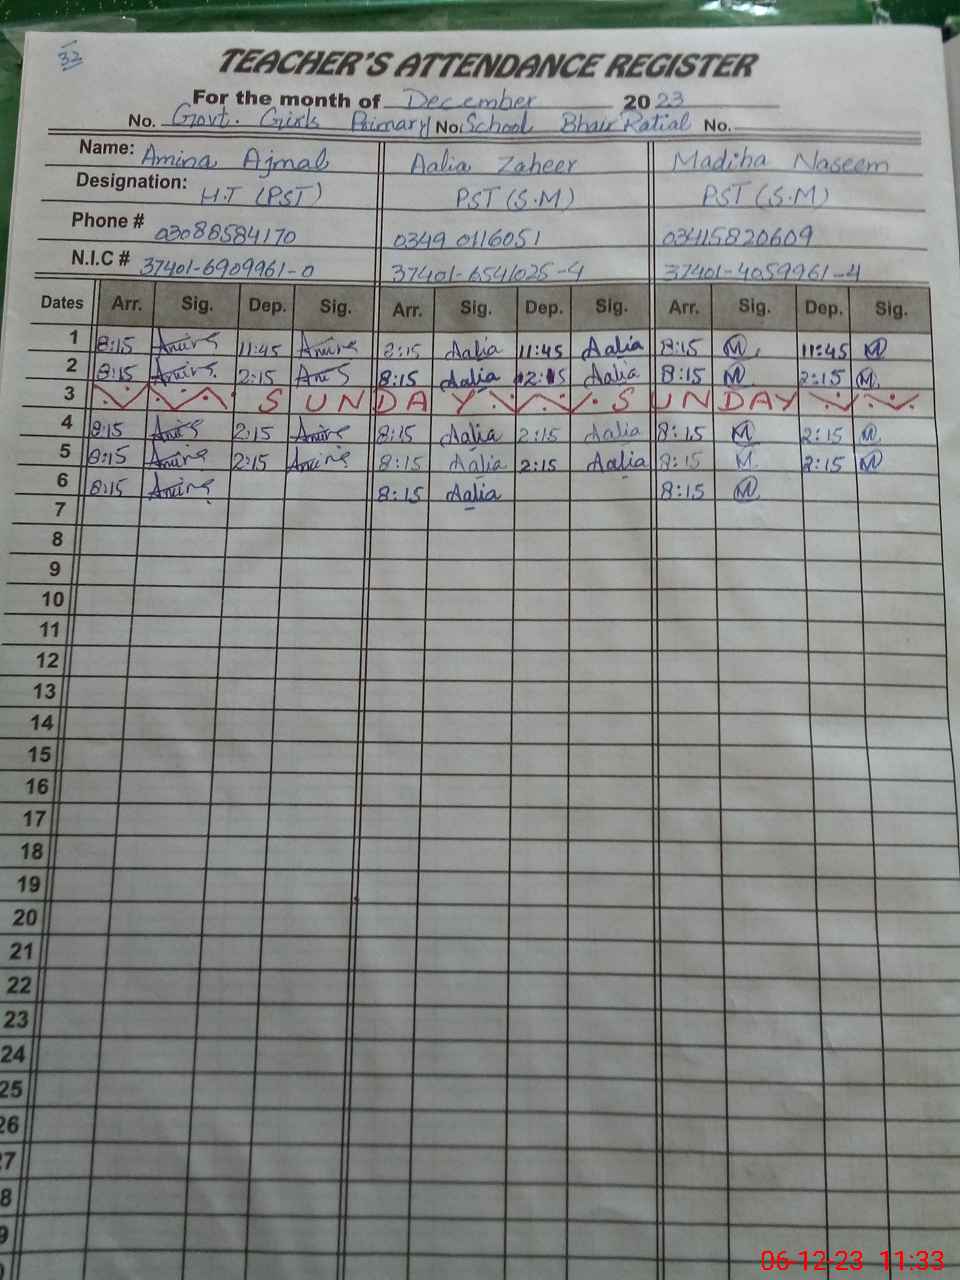 32
TEACHER'S ATTENDANCE REGISTER
For the month of December 2023
No. Govt. Girls Primary No. School Bhair Ratial No.
Name: Amina Ajmal Aalia Zaheer Madiha Naseem
Designation: H.T (PST) PST (S.M) PST (S.M)
Phone # 03088584170 0349 0116051 03415820609
N.I.C # 37401-6909961-0 37401-6541025-4 37401-4059961-4
Dates Arr. Sig. Dep. Sig. Arr. Sig. Dep. Sig. Arr. Sig. Dep. Sig.
1 8:15 11:45 8:15 Aalia 11:45 Aalia 8:15 M. 11:45 M
2 8:15 2:15 8:15 Aalia 2:15 Aalia 8:15 M 2:15 M.
3 SUNDAY SUNDAY
4 8:15 2:15 8:15 Aalia 2:15 Aalia 8:15 M 2:15 M
5 8:15 2:15 8:15 Aalia 2:15 Aalia 8:15 M. 2:15 M
6 8:15 8:15 Aalia 8:15 M
7
8
9
10
11
12
13
14
15
16
17
18
19
20
21
22
23
24
25
26
7
8
9
06-12-23 11:33